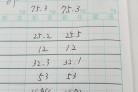 75.3 75.3
25.2 25.5
12 12
32.3 32.1
53 53